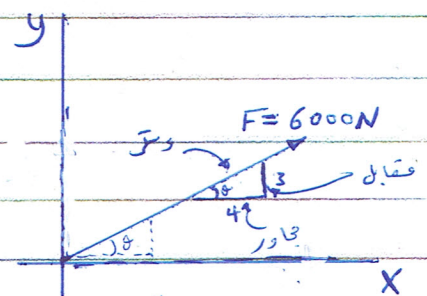 y
F = 6000N
وتر
θ
3
مقابل
4
مجاور
θ
X